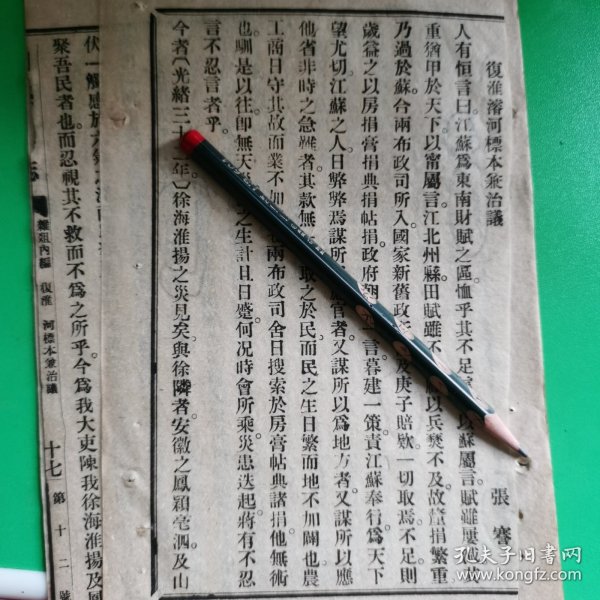 復淮濬河標本兼治議
張謇
人有恒言曰江蘇爲東南財賦之區恤乎其不足 以蘇屬言賦雖屢
重猶甲於天下以甯屬言江北州縣田賦雖不 以兵燹不及故釐捐繁重
乃過於蘇合兩布政司所入國家新舊政 及庚子賠款一切取焉不足則
歲益之以房捐膏捐典捐帖捐政府朝 言暮建一策責江蘇奉行爲天下
望尤切江蘇之人日弊弊焉謀所 官者又謀所以爲地方者又謀所以應
他省非時之急難者其款無 取之於民而民之生日繁而地不加闢也農
工商日守其故而業不加 兩布政司舍日搜索於房膏帖典諸捐他無術
也馴是以往卽無天 之生計且日蹙何况時會所乘災患迭起將有不忍
言不忍言者乎
今者(光緒三十 年)徐海淮揚之災見矣與徐隣者安徽之鳳潁亳泗及山
聚吾民者也而忍視其不救而不爲之所乎今爲我大吏陳我徐海淮揚及
雜俎內編 復淮 河標本兼治議 十七 第十二號
孔夫子旧书网
www.kongfz.com